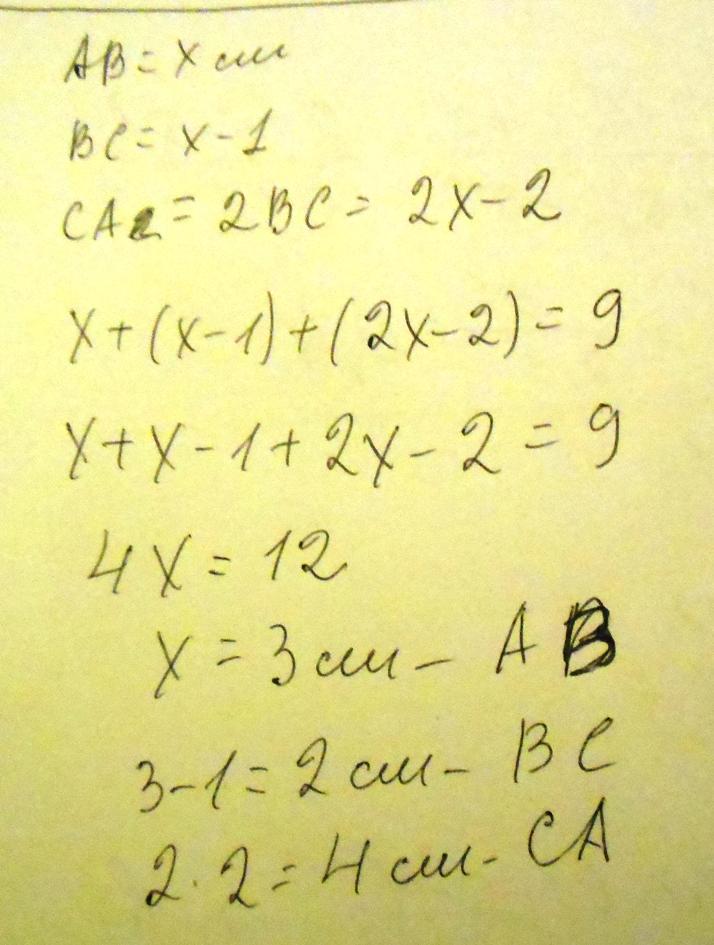 AB = x см
BC = x - 1
CA = 2BC = 2x - 2
x + (x - 1) + (2x - 2) = 9
x + x - 1 + 2x - 2 = 9
4x = 12
x = 3 см - AB
3 - 1 = 2 см - BC
2 · 2 = 4 см - CA